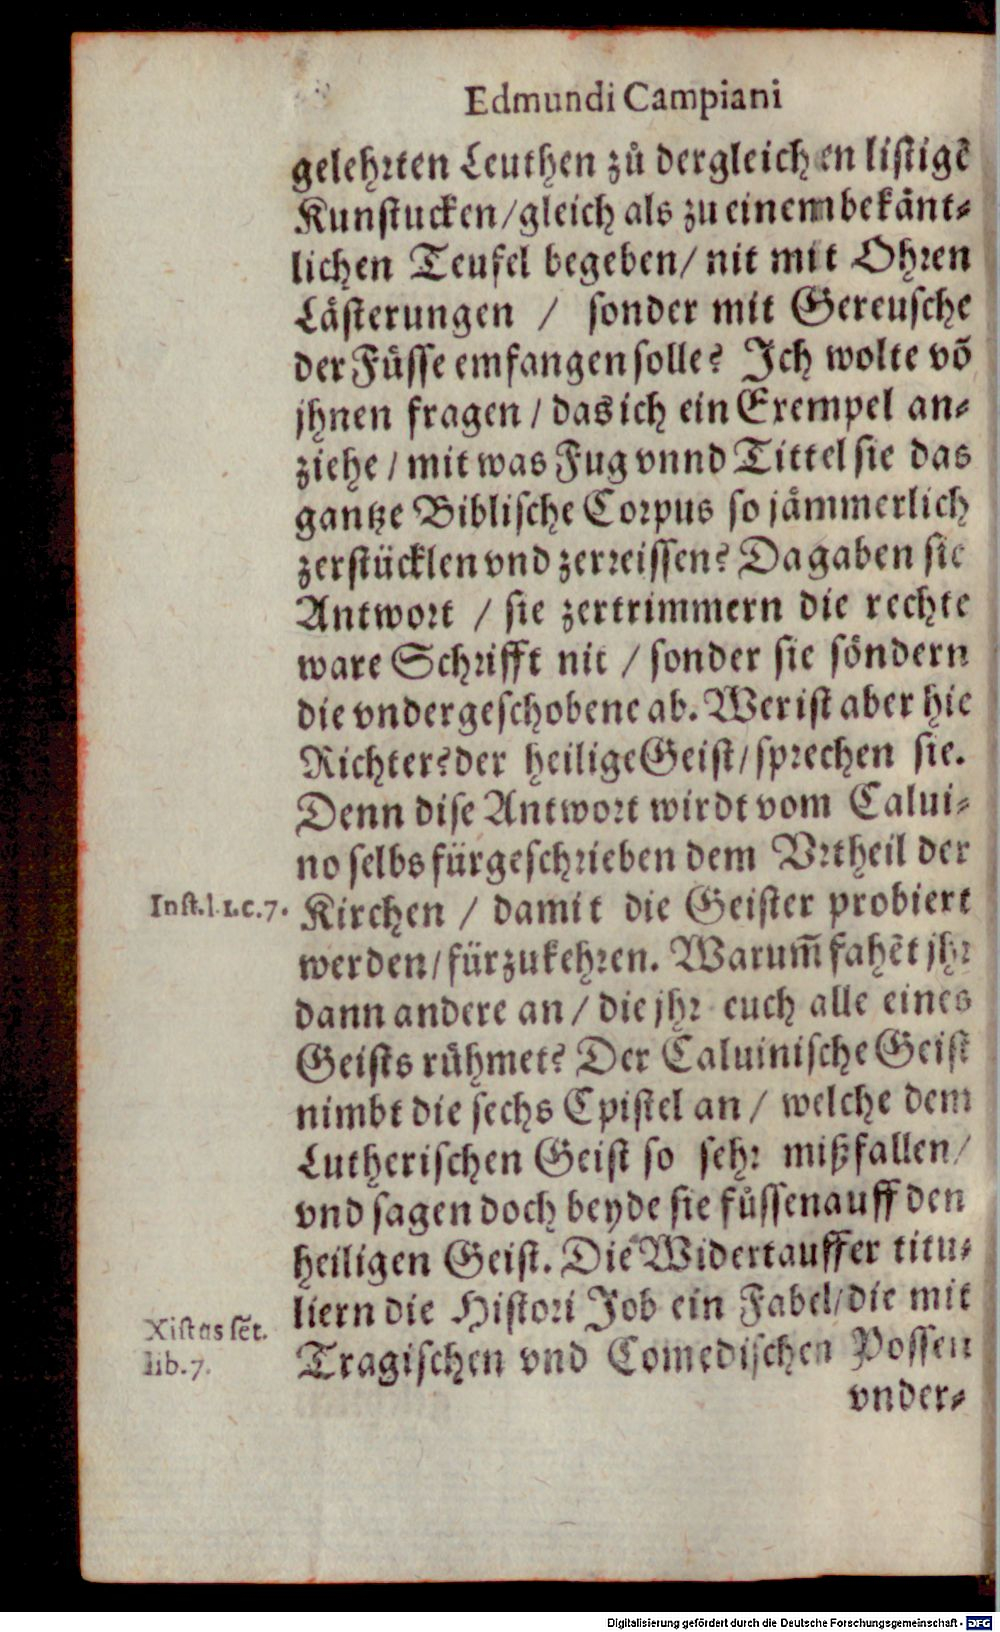 Edmundi Campiani
gelehrten Leuthen zů dergleichen listigẽ
Kunstucken/gleich als zu einem bekånt-
lichen Teufel begeben/ nit mit Ohren
Låsterungen / sonder mit Gereusche
der Fůsse emfangen solle? Ich wolte võ
jhnen fragen / das ich ein Exempel an-
ziehe / mit was Fug vnnd Tittel sie das
gantze Biblische Corpus so jåmmerlich
zerstücklen vnd zerreissen? Da gaben sie
Antwort / sie zertrimmern die rechte
ware Schrifft nit / sonder sie sŏndern
die vndergeschobene ab. Wer ist aber hie
Richter? der heilige Geist/ sprechen sie.
Denn dise Antwort wirdt vom Calui-
no selbs fürgeschrieben dem Vrtheil der
Inst.l.1.c.7.
Kirchen / damit die Geister probiert
werden/ fürzukehren. Warum̃ fahẽt jhr
dann andere an / die jhr euch alle eines
Geists růhmet? Der Caluinische Geist
nimbt die sechs Epistel an / welche dem
Lutherischen Geist so sehr mißfallen/
vnd sagen doch beyde sie fůssen auff den
heiligen Geist. Die Widertauffer titu-
liern die Histori Job ein Fabel/ die mit
Xistus sẽt.
lib.7.
Tragischen vnd Comedischen Possen
vnder-
Digitalisierung gefördert durch die Deutsche Forschungsgemeinschaft - DFG